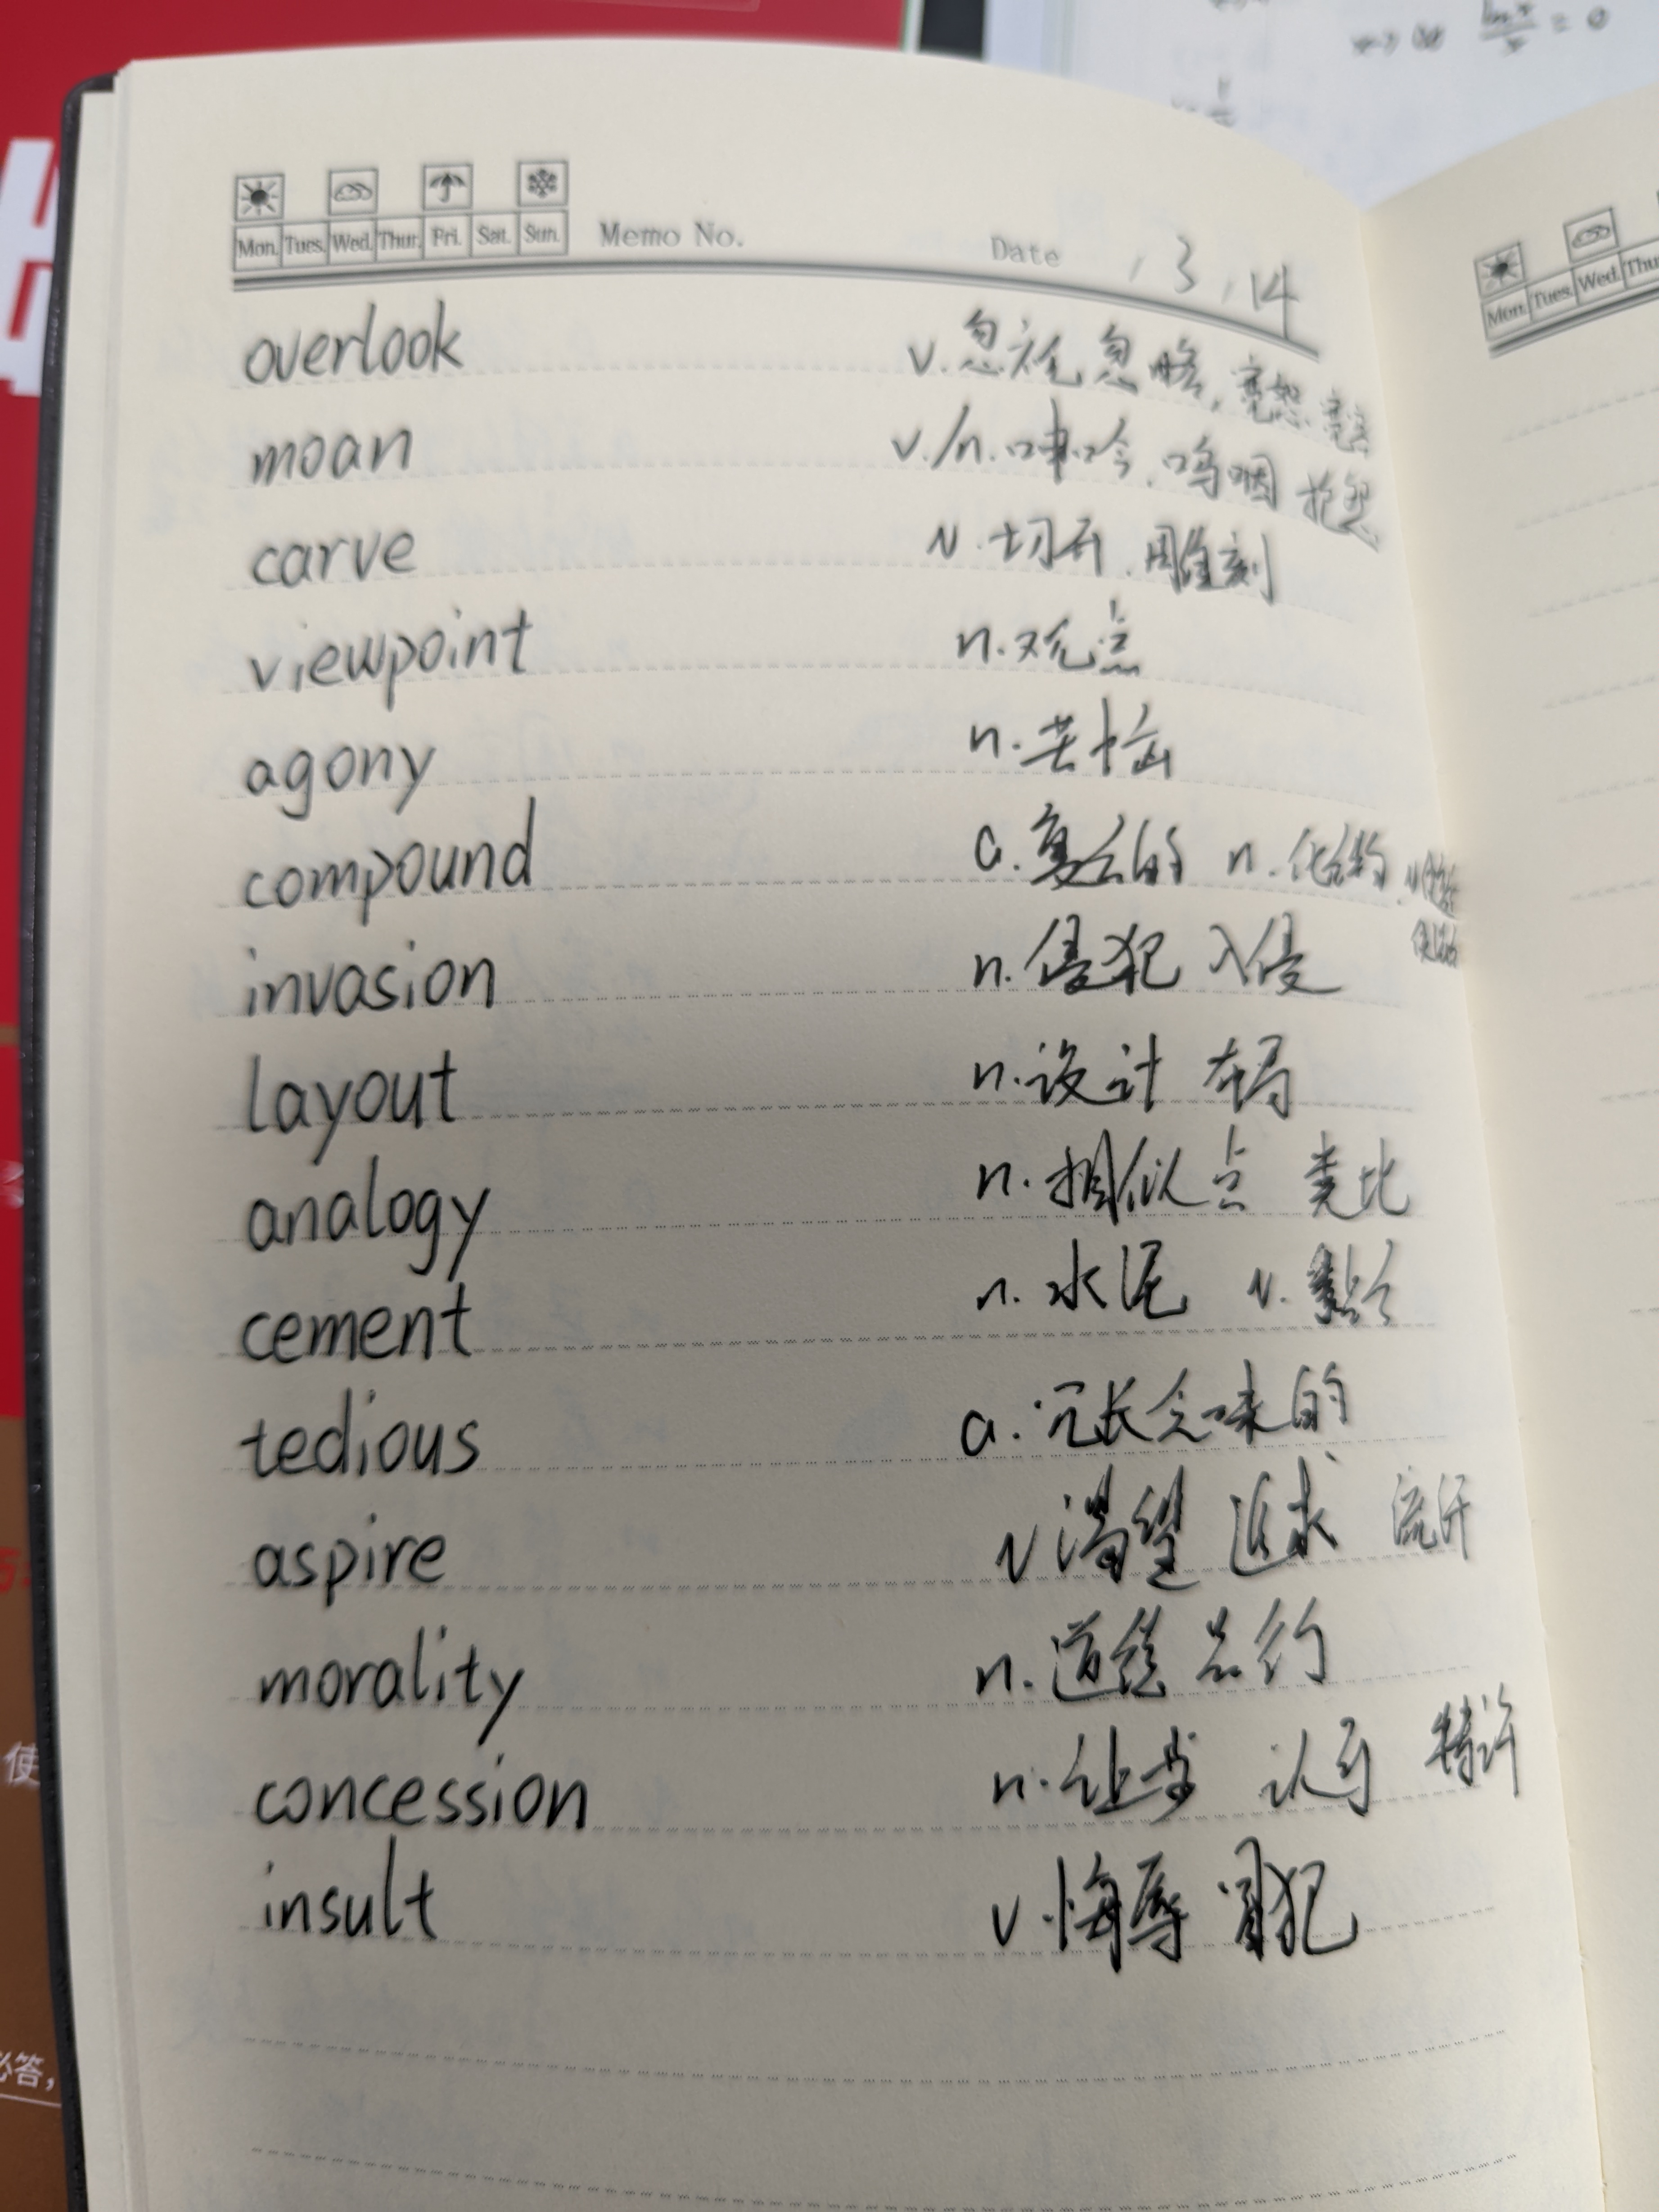 Mon. Tues. Wed. Thur. Fri. Sat. Sun. Memo No. Date .3.14
overlook v.忽视 忽略,宽恕
moan v./n.呻吟,呜咽 抱怨
carve v.切开,雕刻
viewpoint n.观点
agony n.苦恼
compound a.复合的 n.化合物
invasion n.侵犯 入侵
layout n.设计 布局
analogy n.相似点 类比
cement n.水泥 v.黏合
tedious a.冗长乏味的
aspire v渴望 追求
morality n.道德 品行
concession n.让步 认可 特许
insult v.侮辱 冒犯
Mon. Tues. Wed.
使
必答,